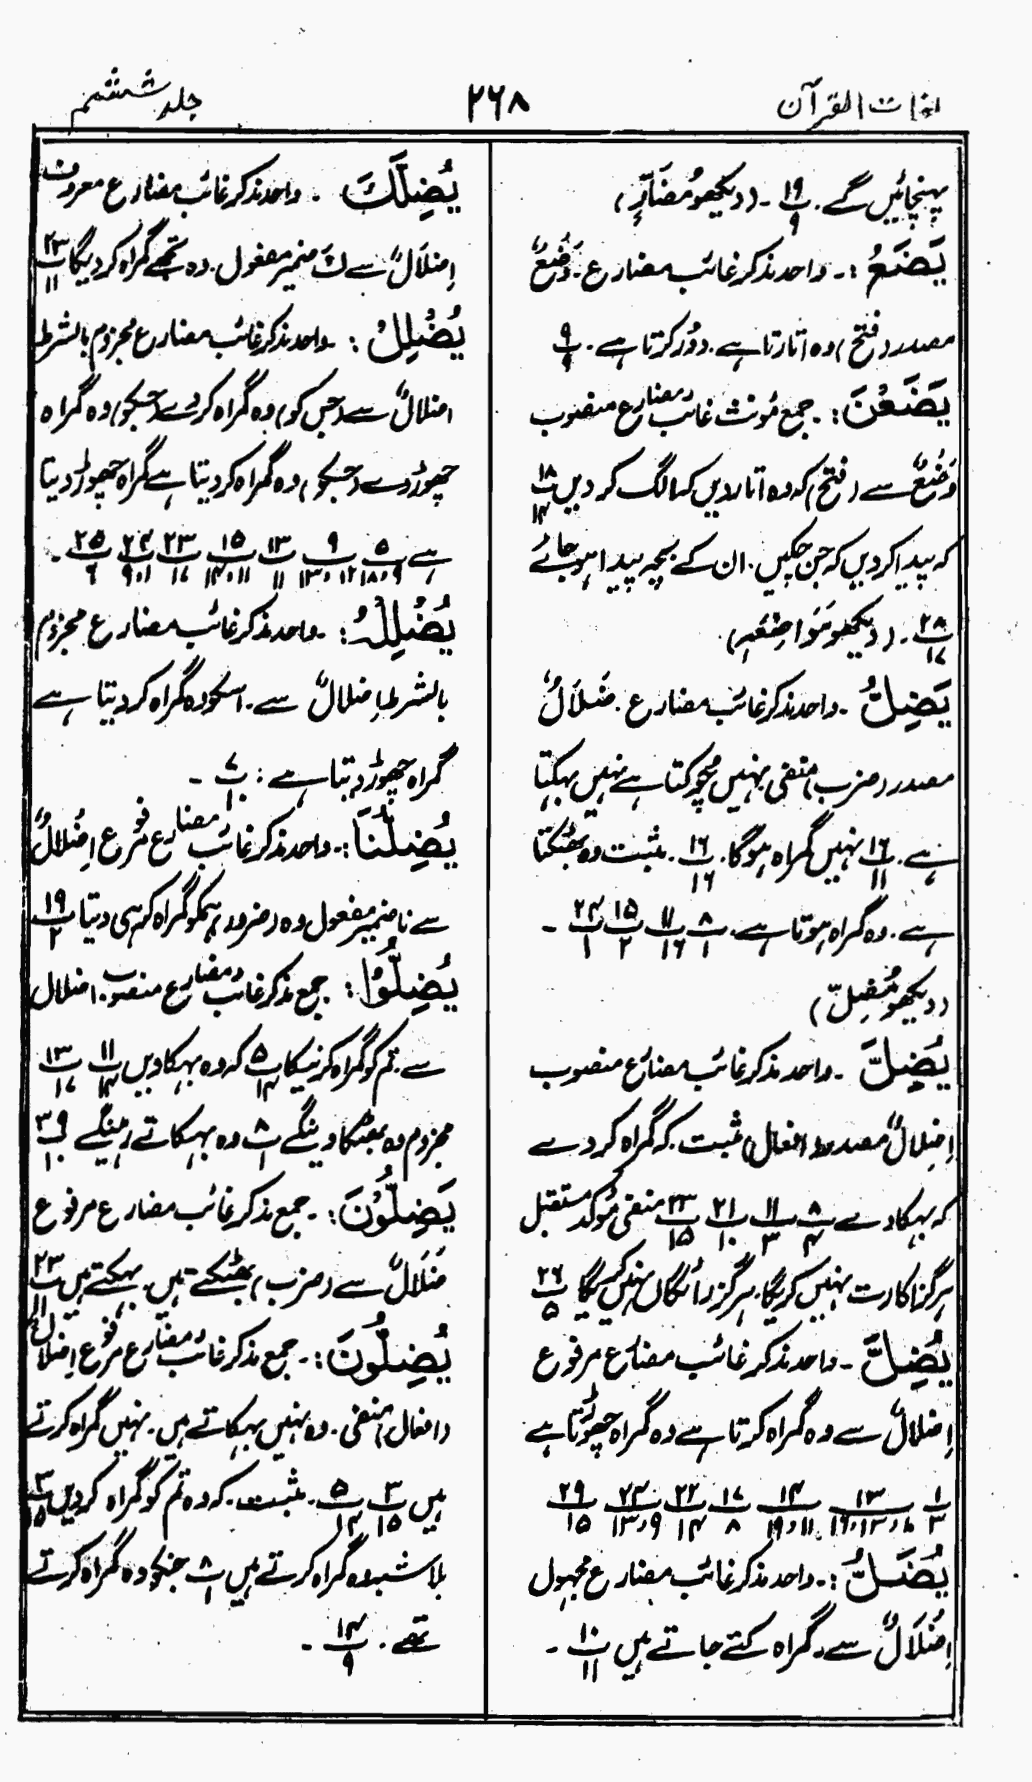 لغات القرآن ۲۶۸ جلد ششم
پہنچائیں گے۔ ۱۹/۹ ۔ (دیکھو مُضَآرٍّ)
یَضَعُ :۔ واحد مذکر غائب مضارع۔ وَضْعٌ
مصدر (فتح) وہ اتارتا ہے۔ دور کرتا ہے۔ ۹/۹
یَضَعْنَ :۔ جمع مؤنث غائب مضارع منصوب
وَضْعٌ سے (فتح) کہ وہ اتار دیں کہ الگ کر دیں ۱۸/۱۴
کہ پیدا کر دیں کہ جن چکیں۔ ان کے بچہ پیدا ہو جائے
۲۸/۱۷ ۔ (دیکھو مَوَاضِعِہٖ)
یَضِلُّ ۔ واحد مذکر غائب مضارع۔ ضَلَالٌ
مصدر (ضرب) منفی نہیں چوکتا ہے نہیں بہکتا
ہے۔ ۱۶/۱۱ نہیں گمراہ ہوگا۔ ۱۶/۱۶ ۔ مثبت وہ بھٹکتا
ہے۔ وہ گمراہ ہوتا ہے۔ ۸/۱ ۱۱/۱۶ ۱۵/۲ ۲۴/۱ ۔
(دیکھو مُضِلّ)
یُضِلَّ ۔ واحد مذکر غائب مضارع منصوب
اِضْلَالٌ مصدر (افعال) مثبت۔ کہ گمراہ کر دے
کہ بہکا دے ۸/۴ ۱۱/۳ ۲۱/۱۰ ۲۳/۱۵ منفی مؤکد مستقبل
ہرگز اکارت نہیں کریگا۔ ہرگز رائگاں نہیں کریگا ۲۶/۵
یُضِلُّ ۔ واحد مذکر غائب مضارع مرفوع
اِضْلَالٌ سے وہ گمراہ کرتا ہے وہ گمراہ چھوڑتا ہے
۱/۳ ۱۳/۸،۱۲،۱۶ ۱۴/۱۱،۱۹ ۱۷/۸ ۲۲/۱۴ ۲۴/۹،۱۳ ۲۹/۱۵
یُضَلُّ :۔ واحد مذکر غائب مضارع مجہول
اِضْلَالٌ سے۔ گمراہ کئے جاتے ہیں ۱۰/۱۱ ۔
یُضِلَّکَ ۔ واحد مذکر غائب مضارع معروف
اِضْلَالٌ سے کَ ضمیر مفعول۔ وہ تجھے گمراہ کر دیگا ۲۳/۱۱
یُضْلِلْ :۔ واحد مذکر غائب مضارع مجزوم بالشرط
اضلالٌ سے (جس کو) وہ گمراہ کر دے (جسکو) وہ گمراہ
چھوڑ دے (جسکو) وہ گمراہ کر دیتا ہے گمراہ چھوڑ دیتا
ہے ۵/۹،۱۸ ۹/۱۲،۱۳ ۱۳/۱۱ ۱۵/۱۱،۱۴ ۲۳/۱۷ ۲۴/۱،۹ ۲۵/۶ ۔
یُضْلِلْہُ :۔ واحد مذکر غائب مضارع مجزوم
بالشرط اِضلالٌ سے۔ اسکو وہ گمراہ کر دیتا ہے
گمراہ چھوڑ دیتا ہے : ۷/۱۰ ۔
یُضِلُّنَا :۔ واحد مذکر غائب مضارع مرفوع اِضْلَالٌ
سے نا ضمیر مفعول وہ (ضرور) ہمکو گمراہ کر ہی دیتا ۱۹/۲
یُضِلُّوْا : جمع مذکر غائب مضارع منصوب۔ اضلال
سے۔ تم کو گمراہ کرنیکا ۵/۱۴ کہ وہ بہکا دیں ۱۱/۱۴ ۱۳/۱۷
مجزوم وہ بھٹکا دینگے ۸/۱ وہ بہکاتے رہینگے ۲۹/۱۰
یَضِلُّوْنَ :۔ جمع مذکر غائب مضارع مرفوع
ضَلَالٌ سے (ضرب) بھٹکتے ہیں۔ بہکتے ہیں ۲۳/۱۱
یُضِلُّوْنَ :۔ جمع مذکر غائب مضارع مرفوع اِضْلَالٌ
(افعال) منفی۔ وہ نہیں بہکاتے ہیں۔ نہیں گمراہ کرتے
ہیں ۳/۱۵ ۵/۱۴ ۔ مثبت۔ کہ وہ تم کو گمراہ کر دیں ۳/۱۵
بلاشبہ وہ گمراہ کرتے ہیں ۸/۱ جنکو وہ گمراہ کرتے
تھے۔ ۱۴/۹ ۔